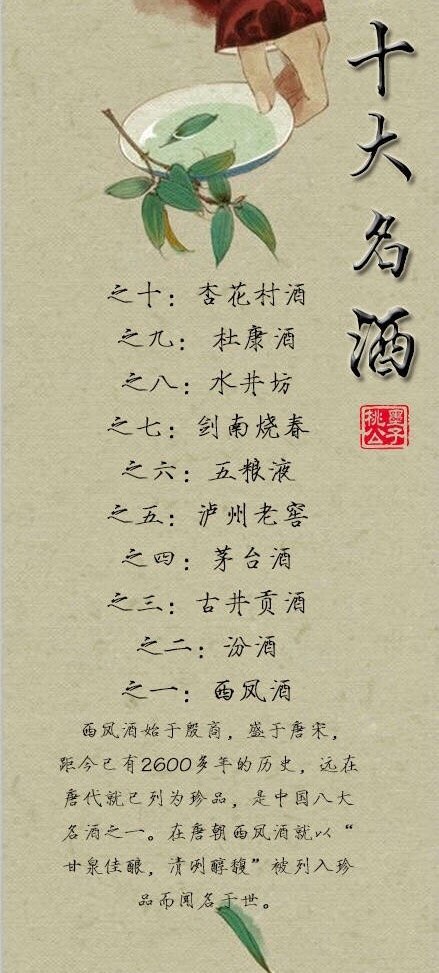 十大名酒
墨子
桃公
之十：杏花村酒
之九：杜康酒
之八：水井坊
之七：剑南烧春
之六：五粮液
之五：泸州老窖
之四：茅台酒
之三：古井贡酒
之二：汾酒
之一：西凤酒
西凤酒始于殷商，盛于唐宋，
距今已有2600多年的历史，远在
唐代就已列为珍品，是中国八大
名酒之一。在唐朝西凤酒就以“
甘泉佳酿，清冽醇馥”被列入珍
品而闻名于世。